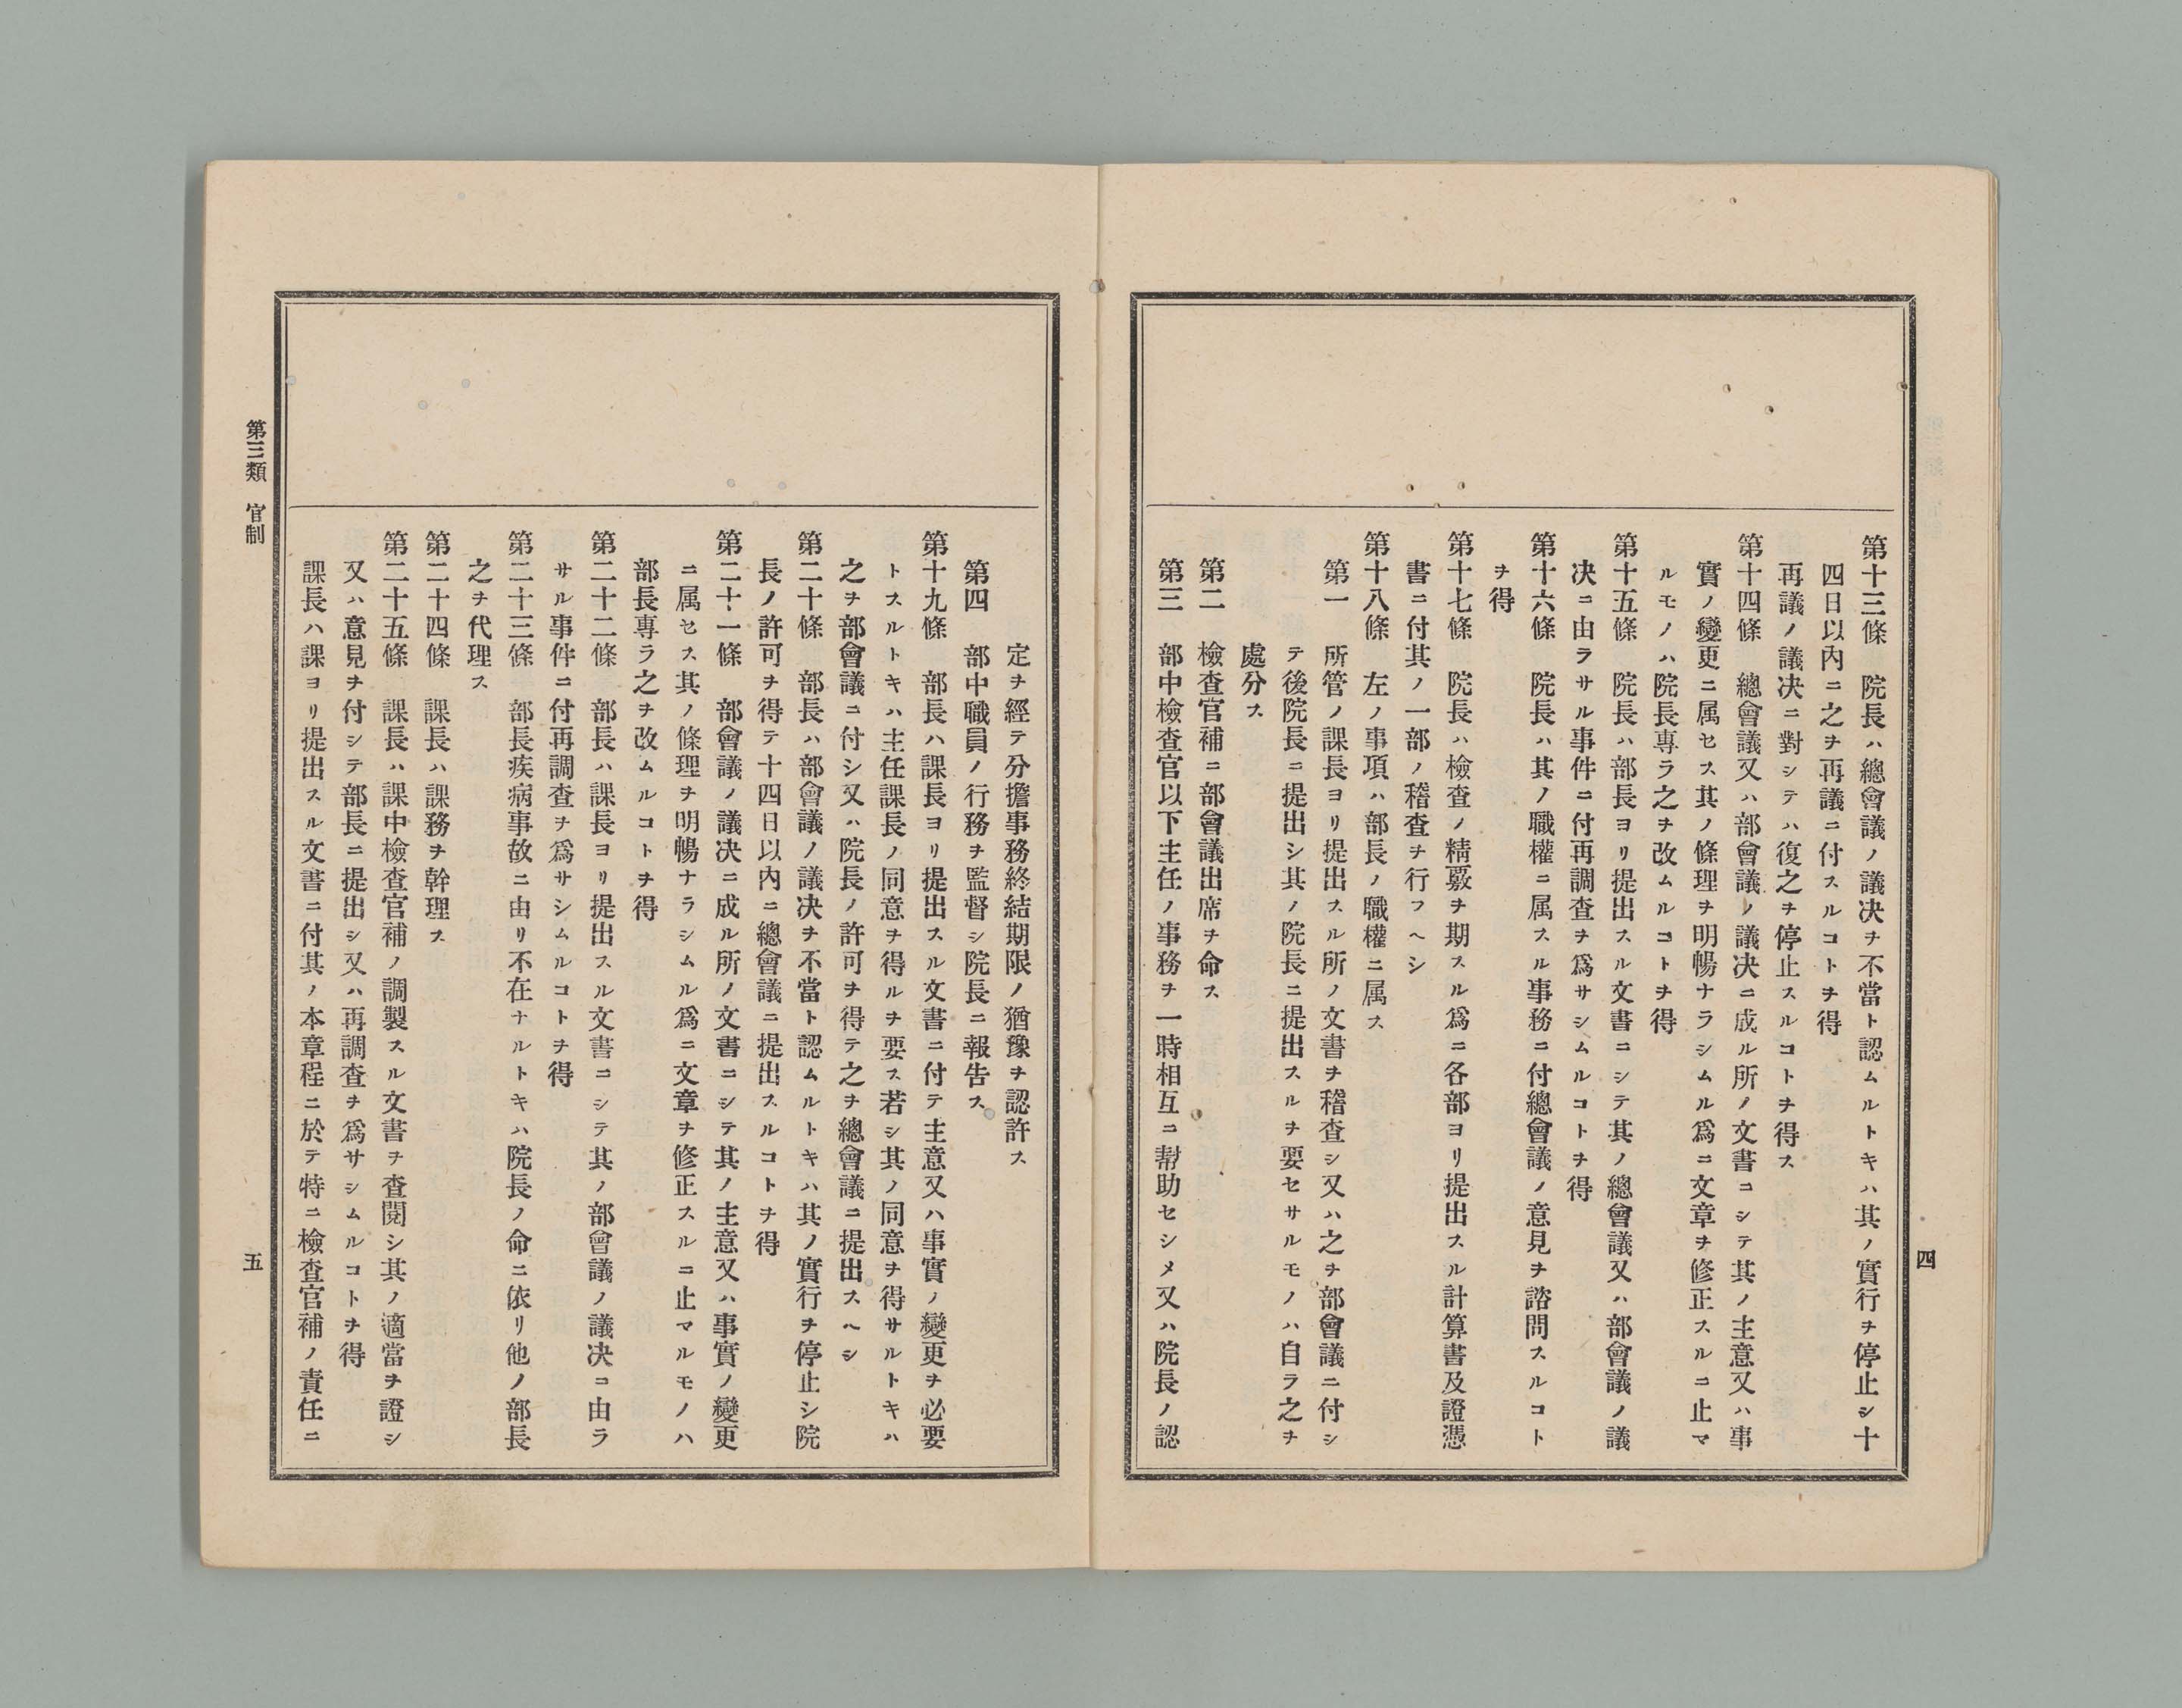 第十三條　院長ハ總會議ノ議决ヲ不當ト認ムルトキハ其ノ實行ヲ停止シ十
四日以內ニ之ヲ再議ニ付スルコトヲ得
再議ノ議决ニ對シテハ復之ヲ停止スルコトヲ得ス
第十四條　總會議又ハ部會議ノ議决ニ成ル所ノ文書ニシテ其ノ主意又ハ事
實ノ變更ニ属セス其ノ條理ヲ明暢ナラシムル爲ニ文章ヲ修正スルニ止マ
ルモノハ院長專ラ之ヲ改ムルコトヲ得
第十五條　院長ハ部長ヨリ提出スル文書ニシテ其ノ總會議又ハ部會議ノ議
决ニ由ラサル事件ニ付再調査ヲ爲サシムルコトヲ得
第十六條　院長ハ其ノ職權ニ属スル事務ニ付總會議ノ意見ヲ諮問スルコト
ヲ得
第十七條　院長ハ檢査ノ精覈ヲ期スル爲ニ各部ヨリ提出スル計算書及證憑
書ニ付其ノ一部ノ稽査ヲ行フヘシ
第十八條　左ノ事項ハ部長ノ職權ニ属ス
第一　所管ノ課長ヨリ提出スル所ノ文書ヲ稽査シ又ハ之ヲ部會議ニ付シ
テ後院長ニ提出シ其ノ院長ニ提出スルヲ要セサルモノハ自ラ之ヲ
處分ス
第二　檢査官補ニ部會議出席ヲ命ス
第三　部中檢査官以下主任ノ事務ヲ一時相互ニ幇助セシメ又ハ院長ノ認
四
定ヲ經テ分擔事務終結期限ノ猶豫ヲ認許ス
第四　部中職員ノ行務ヲ監督シ院長ニ報告ス
第十九條　部長ハ課長ヨリ提出スル文書ニ付テ主意又ハ事實ノ變更ヲ必要
トスルトキハ主任課長ノ同意ヲ得ルヲ要ス若シ其ノ同意ヲ得サルトキハ
之ヲ部會議ニ付シ又ハ院長ノ許可ヲ得テ之ヲ總會議ニ提出スヘシ
第二十條　部長ハ部會議ノ議决ヲ不當ト認ムルトキハ其ノ實行ヲ停止シ院
長ノ許可ヲ得テ十四日以內ニ總會議ニ提出スルコトヲ得
第二十一條　部會議ノ議决ニ成ル所ノ文書ニシテ其ノ主意又ハ事實ノ變更
ニ属セス其ノ條理ヲ明暢ナラシムル爲ニ文章ヲ修正スルニ止マルモノハ
部長專ラ之ヲ改ムルコトヲ得
第二十二條　部長ハ課長ヨリ提出スル文書ニシテ其ノ部會議ノ議决ニ由ラ
サル事件ニ付再調査ヲ爲サシムルコトヲ得
第二十三條　部長疾病事故ニ由リ不在ナルトキハ院長ノ命ニ依リ他ノ部長
之ヲ代理ス
第二十四條　課長ハ課務ヲ幹理ス
第二十五條　課長ハ課中檢査官補ノ調製スル文書ヲ査閱シ其ノ適當ヲ證シ
又ハ意見ヲ付シテ部長ニ提出シ又ハ再調査ヲ爲サシムルコトヲ得
課長ハ課ヨリ提出スル文書ニ付其ノ本章程ニ於テ特ニ檢査官補ノ責任ニ
第三類　官制
五